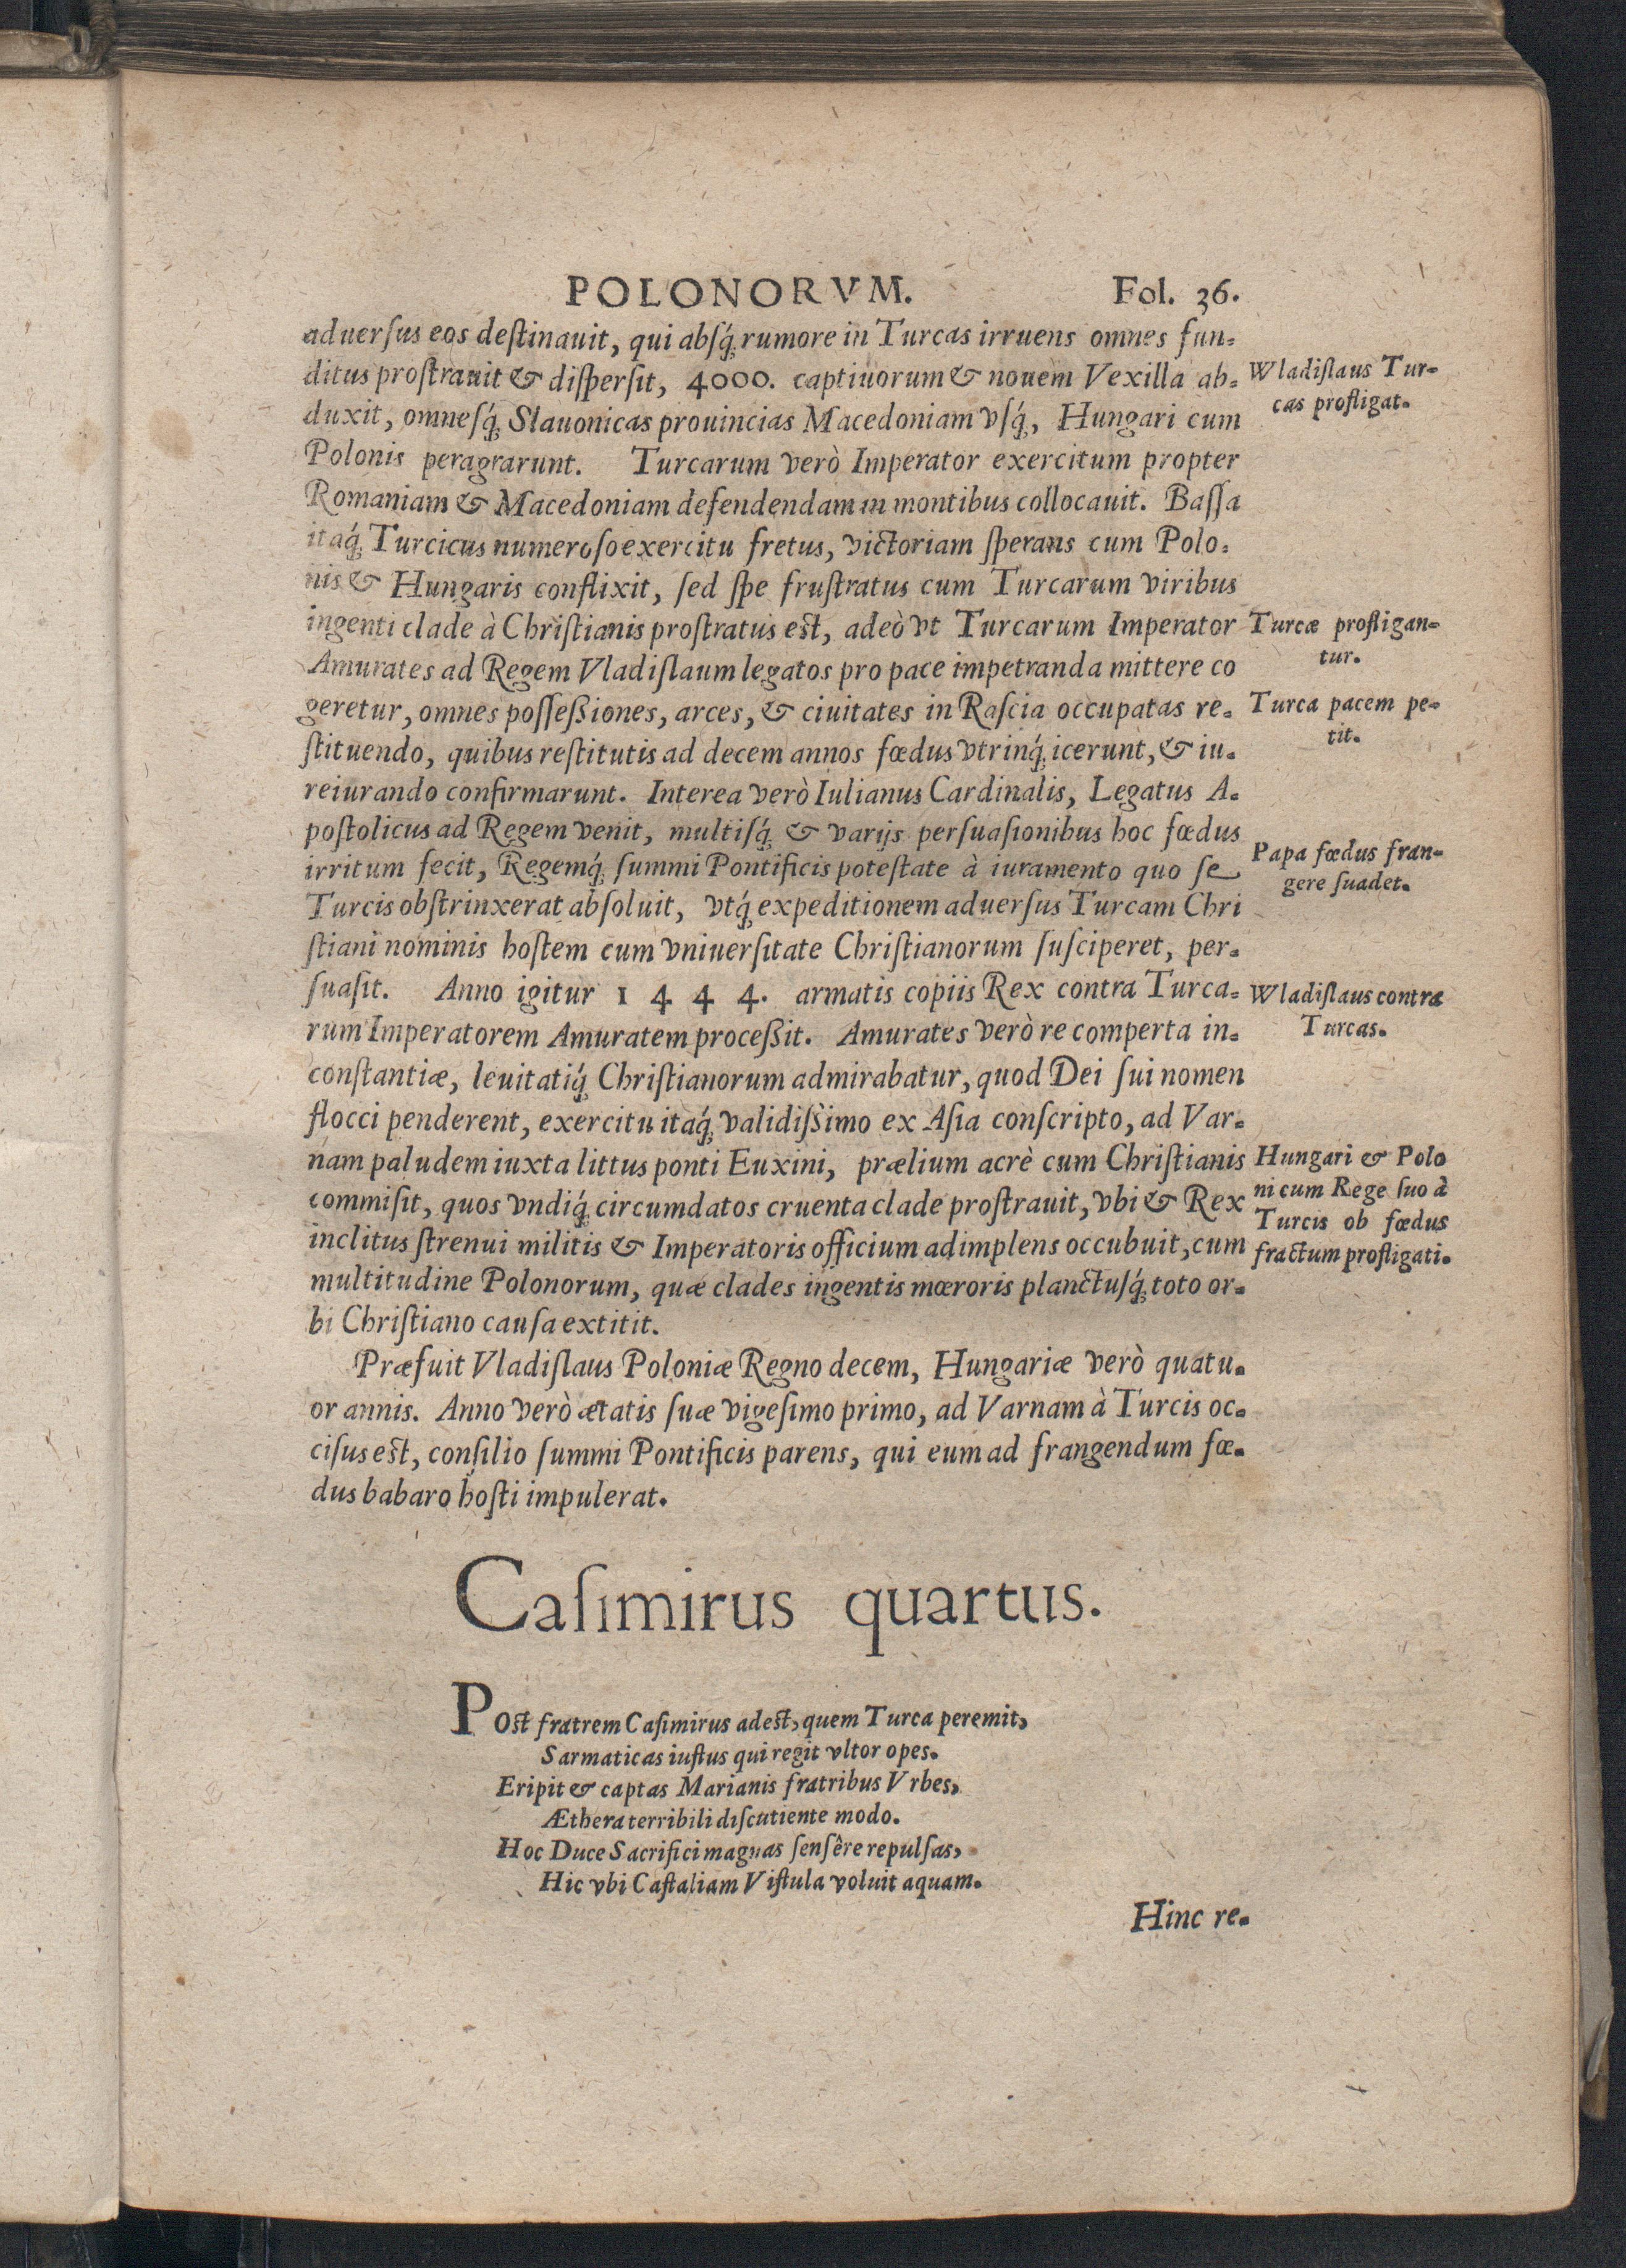 POLONORVM. Fol. 36.
aduerſus eos deſtinauit, qui abſq́; rumore in Turcas irruens omnes fun-
ditus proſtrauit & diſperſit, 4000. captiuorum & nouem Vexilla ab-
duxit, omneſq́; Slauonicas prouincias Macedoniam vſq́;, Hungari cum
Polonis peragrarunt. Turcarum verò Imperator exercitum propter
Romaniam & Macedoniam defendendam in montibus collocauit. Baſſa
itaq́; Turcicus numeroſo exercitu fretus, victoriam ſperans cum Polo-
nis & Hungaris conflixit, ſed ſpe fruſtratus cum Turcarum viribus
ingenti clade à Chriſtianis proſtratus eſt, adeò vt Turcarum Imperator
Amurates ad Regem Vladiſlaum legatos pro pace impetranda mittere co
geretur, omnes poſſeßiones, arces, & ciuitates in Raſcia occupatas re-
ſtituendo, quibus reſtitutis ad decem annos fœdus vtrinq́; icerunt, & iu-
reiurando confirmarunt. Interea verò Iulianus Cardinalis, Legatus A-
poſtolicus ad Regem venit, multiſq́; & varijs perſuaſionibus hoc fœdus
irritum fecit, Regemq́; ſummi Pontificis poteſtate à iuramento quo ſe
Turcis obſtrinxerat abſoluit, vtq́; expeditionem aduerſus Turcam Chri
ſtiani nominis hoſtem cum vniuerſitate Chriſtianorum ſuſciperet, per-
ſuaſit. Anno igitur 1 4 4 4. armatis copiis Rex contra Turca-
rum Imperatorem Amuratem proceßit. Amurates verò re comperta in-
conſtantiæ, leuitatiq́; Chriſtianorum admirabatur, quod Dei ſui nomen
flocci penderent, exercitu itaq́; validißimo ex Aſia conſcripto, ad Var-
nam paludem iuxta littus ponti Euxini, prælium acrè cum Chriſtianis
commiſit, quos vndiq́; circumdatos cruenta clade proſtrauit, vbi & Rex
inclitus ſtrenui militis & Imperatoris officium adimplens occubuit, cum
multitudine Polonorum, quæ clades ingentis mœroris planctuſq́; toto or-
bi Chriſtiano cauſa extitit.
Præfuit Vladiſlaus Poloniæ Regno decem, Hungariæ verò quatu-
or annis. Anno verò ætatis ſuæ vigeſimo primo, ad Varnam à Turcis oc-
ciſus eſt, conſilio ſummi Pontificis parens, qui eum ad frangendum fœ-
dus babaro hoſti impulerat.
Wladiſlaus Tur-
cas profligat.
Turcæ profligan-
tur.
Turca pacem pe-
tit.
Papa fœdus fran-
gere ſuadet.
Wladiſlaus contra
Turcas.
Hungari & Polo
ni cum Rege ſuo à
Turcis ob fœdus
fractum profligati.
Caſimirus quartus.
POſt fratrem Caſimirus adeſt, quem Turca peremit,
Sarmaticas iuſtus qui regit vltor opes.
Eripit & captas Marianis fratribus Vrbes,
Æthera terribili diſcutiente modo.
Hoc Duce Sacrifici magnas ſenſêre repulſas,
Hic vbi Caſtaliam Viſtula voluit aquam.
Hinc re-